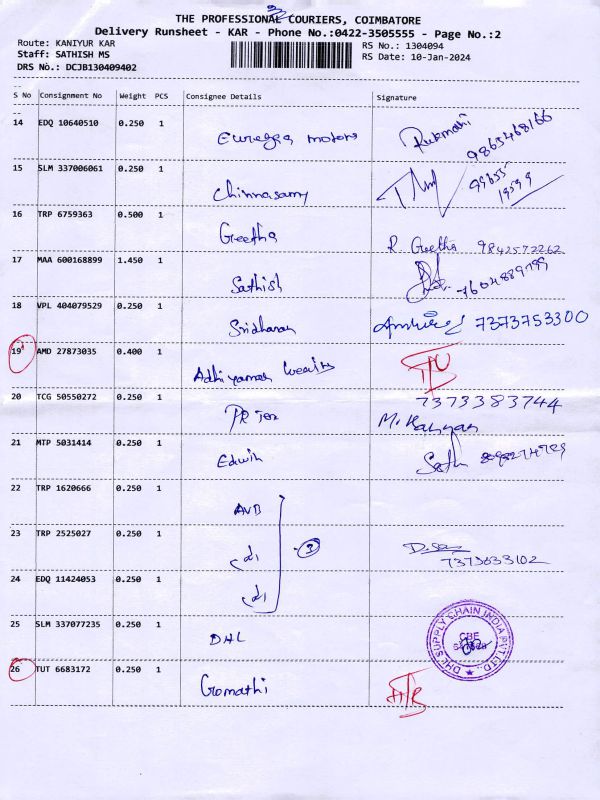 THE PROFESSIONAL COURIERS, COIMBATORE
Delivery Runsheet - KAR - Phone No.:0422-3505555 - Page No.:2
Route: KANIYUR KAR
RS No.: 1304094
Staff: SATHISH MS
RS Date: 10-Jan-2024
DRS No.: DCJB130409402
S No Consignment No Weight PCS Consignee Details Signature
14 EDQ 10640510 0.250 1 motors Rukmani 9865468166
15 SLM 337006061 0.250 1 Chinnasamy 99655 19599
16 TRP 6759363 0.500 1 Geetha R. Geetha 9842572262
17 MAA 600168899 1.450 1 Sathish 7604889799
18 VPL 404079529 0.250 1 Sridharan 7373753300
19 AMD 27873035 0.400 1 Adhiyaman
20 TCG 50550272 0.250 1 PR Tex 7373383744
21 MTP 5031414 0.250 1 Edwin
22 TRP 1620666 0.250 1 AVB
23 TRP 2525027 0.250 1 7373633102
24 EDQ 11424053 0.250 1
25 SLM 337077235 0.250 1 DHL DHL SUPPLY CHAIN INDIA PVT LTD. CBE
26 TUT 6683172 0.250 1 Gomathi